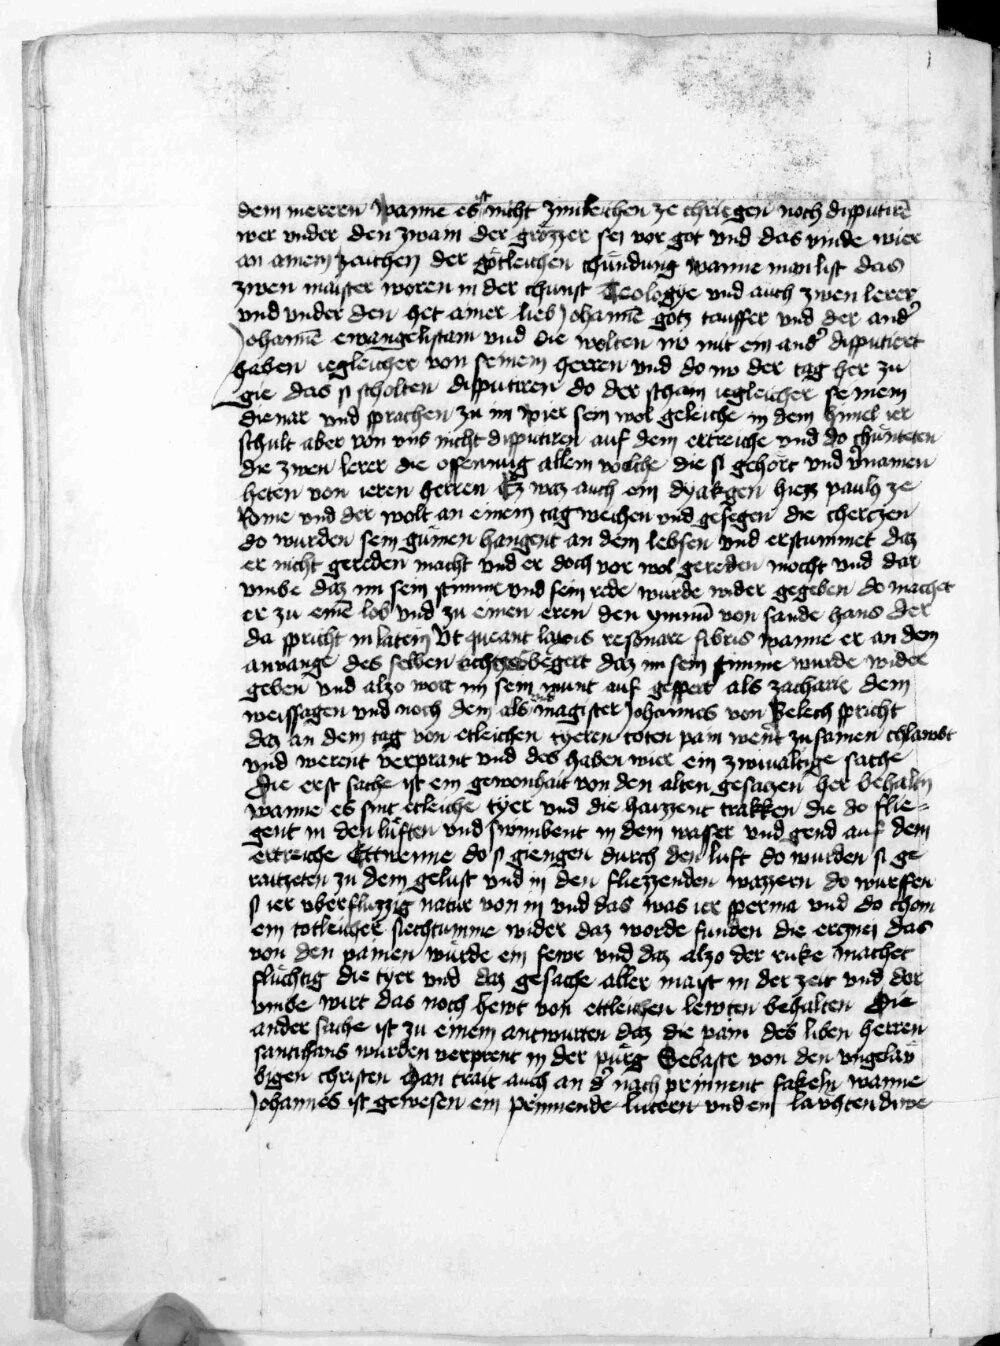 dem merern wanne es ist nicht zimleichen ze chriegen noch disputirn̄
wer vnder den zwain der grözzer sei vor got vnd das vinde wier
an ainem zaichen der götleichen chündung wanne man list das
zwen maister woren in der chunst Teologye vnd auch zwen lerer
vnd vnder den het ainer lieb Johannē gotz tauffer vnd der and̉
Johannē ewangelistam vnd die wolten no mit ein and̉ disputiert
haben iegleicher von seinem herren vnd do no der tag her zu
gie das si scholten disputiren do der scham iegleicher seinem
dienar vnd sprachen zu im wier sein wol geleiche in dem himel ier
schult aber von vns nicht disputiren auf dem ertreiche vnd do chünteten
die zwen lerer die offennug allem volche die si gehört vnd v̉namen
heten von ieren herren Ez waz auch ein dyakgen hiez pauly ze
Rome vnd der wolt an einem tag weichen vnd gesegen die cherczen
do wurden sein gümen hangent an dem lebsen vnd erstummet daz
er nicht gereden macht vnd er doch vor wol gereden mocht vnd dar
vmbe daz im sein stimme vnd sein rede wurde wider gegeben do machet
er zu einē lob vnd zu einen eren den ymnū von sande hans der
da spricht in latein Vt queant laxis resonare fibris wanne er an dem
anvange des selben begert daz im sein stimme wurde wider
geben vnd alzo wort im sein munt auf gespert als zacharie dem
weissagen vnd noch dem als magister Johannes von Belech spricht
daz an dem tag von etleichen tyeren toten pain wen̉t zu samen chlawbt
vnd werent verprant vnd des haben wier ein zwivaltige sache
Die erst sache ist ein gewonhait von den alten gesaczen her behaltn
wanne es sint etleiche tyer vnd die haizzent trakken die do flie=
gent in den lüften vnd swimbent in dem wasser vnd gend auf dem
ertreiche Ettwenne do si giengen durch den luft do wurden si ge
raitzeten zu dem gelust vnd in den fliezzenden wazzern do wurffen
si ier vberfluzzig natur von in vnd das was ier sperma vnd do chom
ein totleicher siechtumme wider daz worde funden die ercznei das
von den painen würde ein fewr vnd daz alzo der ruke machet
flüchtig die tyer vnd daz gesache aller maist in der zeit vnd dor
vmbe wirt das noch hewt von ettleichen lewten behalten Die
ander sache ist zu einem antwurten daz die pain des liben herren
santihans wurden verprent in der pürg Sebaste von den vngelaü
bigen christen Man trait auch an d̉ nach prinnent fakeln wanne
Johannes ist gewesen ein prinnende lucern vnd ein laühtendiwe